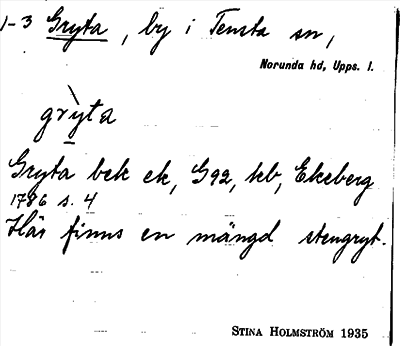 1-3 Gryta, by i Tensta sn,
Norunda hd, Upps. l.
grỳta
Gryta bek ek, G92, kb, Ekeberg
1786 s. 4
Här finns en mängd stengryt.
STINA HOLMSTRÖM 1935